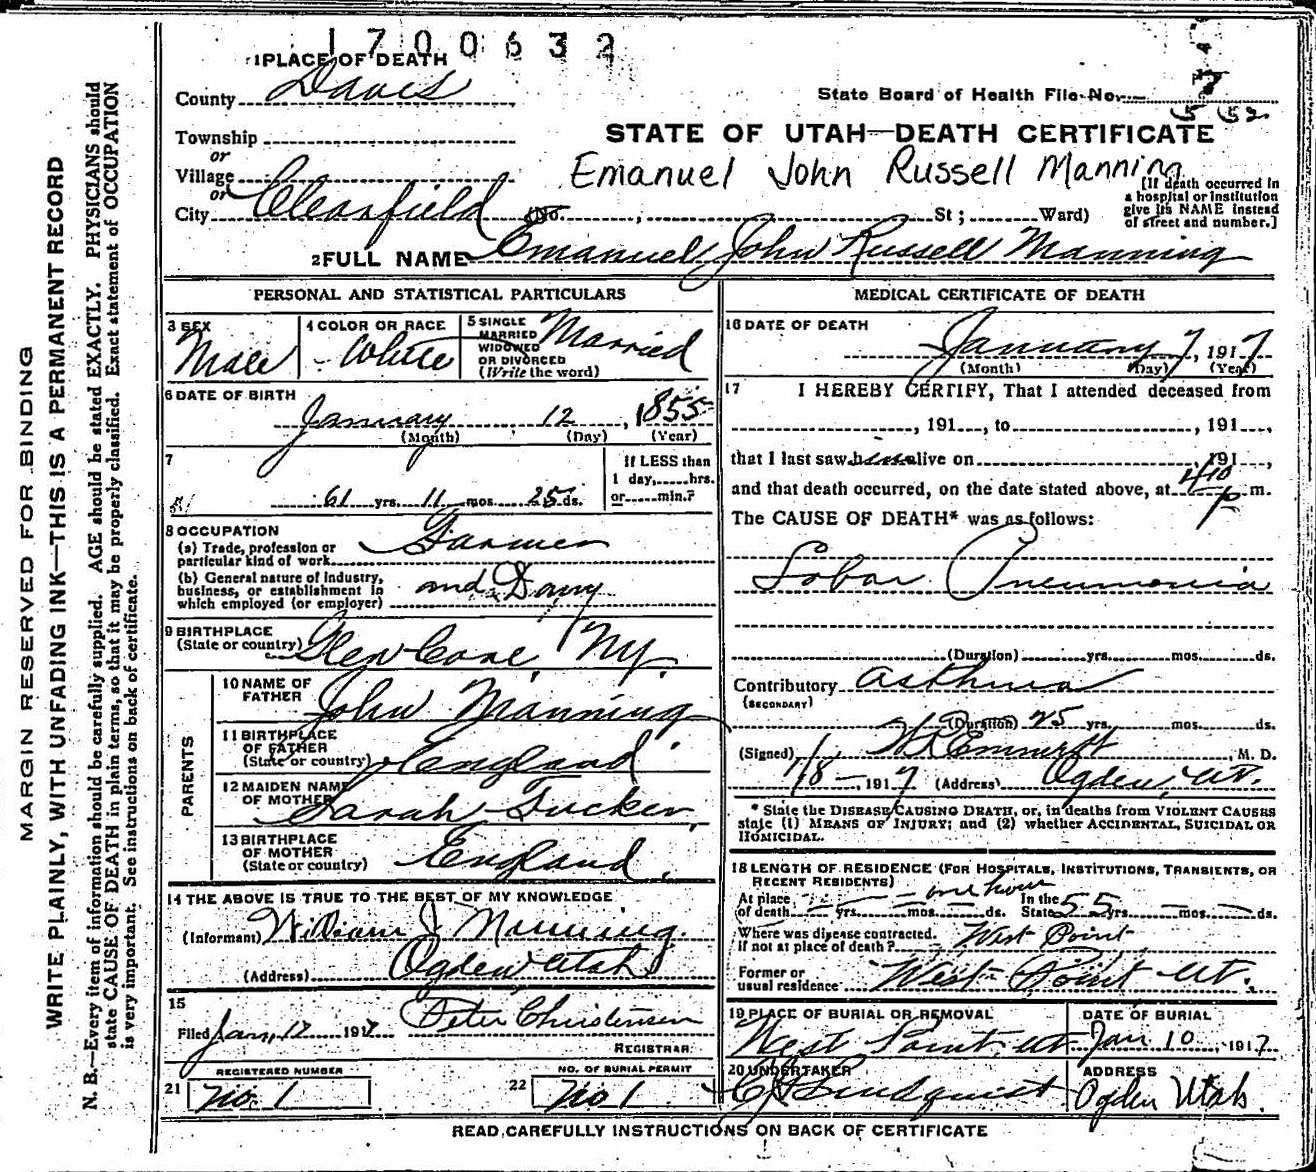 1700632
1 PLACE OF DEATH
County Davis
State Board of Health File No. 7
552
Township
or
Village
or
City Clearfield (No. , St; Ward)
STATE OF UTAH—DEATH CERTIFICATE
Emanuel John Russell Manning
[If death occurred in
a hospital or institution
give its NAME instead
of street and number.]
2 FULL NAME Emanuel John Russell Manning
PERSONAL AND STATISTICAL PARTICULARS
3 SEX
Male
4 COLOR OR RACE
White
5 SINGLE
MARRIED
WIDOWED
OR DIVORCED
(Write the word)
Married
6 DATE OF BIRTH
January 12, 1855
(Month) (Day) (Year)
7
61 yrs. 11 mos. 25 ds.
If LESS than
1 day, hrs.
or min.?
8 OCCUPATION
(a) Trade, profession or
particular kind of work Farmer
(b) General nature of industry,
business, or establishment in
which employed (or employer) and Dairy
9 BIRTHPLACE
(State or country) Glen Cove, NY.
PARENTS
10 NAME OF
FATHER John Manning
11 BIRTHPLACE
OF FATHER
(State or country) England
12 MAIDEN NAME
OF MOTHER Sarah Tucker
13 BIRTHPLACE
OF MOTHER
(State or country) England
14 THE ABOVE IS TRUE TO THE BEST OF MY KNOWLEDGE
(Informant) William J. Manning.
(Address) Ogden Utah
15
Filed Jan, 12 1917 Peter Christensen
REGISTRAR
REGISTERED NUMBER
21 No. 1
NO. OF BURIAL PERMIT
22 No 1
MEDICAL CERTIFICATE OF DEATH
16 DATE OF DEATH
January 7, 1917
(Month) (Day) (Year)
17 I HEREBY CERTIFY, That I attended deceased from
, 191 , to , 191 ,
that I last saw him alive on 191 ,
and that death occurred, on the date stated above, at 4/10 P m.
The CAUSE OF DEATH* was as follows:
Lobar Pneumonia
(Duration) yrs. mos. ds.
Contributory Asthma
(SECONDARY)
(Duration) 25 yrs. mos. ds.
(Signed) , M. D.
1/8 —, 1917 (Address) Ogden, Ut.
* State the DISEASE CAUSING DEATH, or, in deaths from VIOLENT CAUSES
state (1) MEANS OF INJURY; and (2) whether ACCIDENTAL, SUICIDAL OR
HOMICIDAL.
18 LENGTH OF RESIDENCE (FOR HOSPITALS, INSTITUTIONS, TRANSIENTS, OR
RECENT RESIDENTS)
At place
of death yrs. mos. ds. one hour In the
State 55 yrs. mos. ds.
Where was disease contracted.
if not at place of death? West Point
Former or
usual residence West Point Ut.
19 PLACE OF BURIAL OR REMOVAL
West Point, Ut
DATE OF BURIAL
Jan 10, 1917
20 UNDERTAKER
Lindquist
ADDRESS
Ogden Utah.
READ CAREFULLY INSTRUCTIONS ON BACK OF CERTIFICATE
MARGIN RESERVED FOR BINDING
WRITE PLAINLY, WITH UNFADING INK—THIS IS A PERMANENT RECORD
N. B.—Every item of information should be carefully supplied. AGE should be stated EXACTLY. PHYSICIANS should
state CAUSE OF DEATH in plain terms, so that it may be properly classified. Exact statement of OCCUPATION
is very important. See instructions on back of certificate.